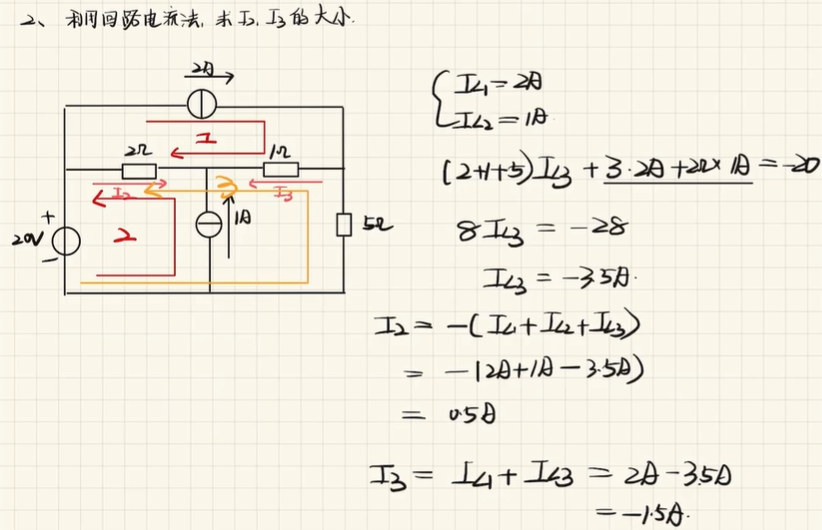 2、利用回路电流法,求I₂,I₃的大小.
2A
1
2Ω
1Ω
I₂
3
I₃
1A
20V
+
-
2
5Ω
{ I_L1=2A
I_L2=1A
(2+1+5)I_L3+3·2A+2Ω×1A=-20
8I_L3=-28
I_L3=-3.5A.
I₂=-(I_L1+I_L2+I_L3)
=-(2A+1A-3.5A)
=0.5A
I₃=I_L1+I_L3=2A-3.5A
=-1.5A.